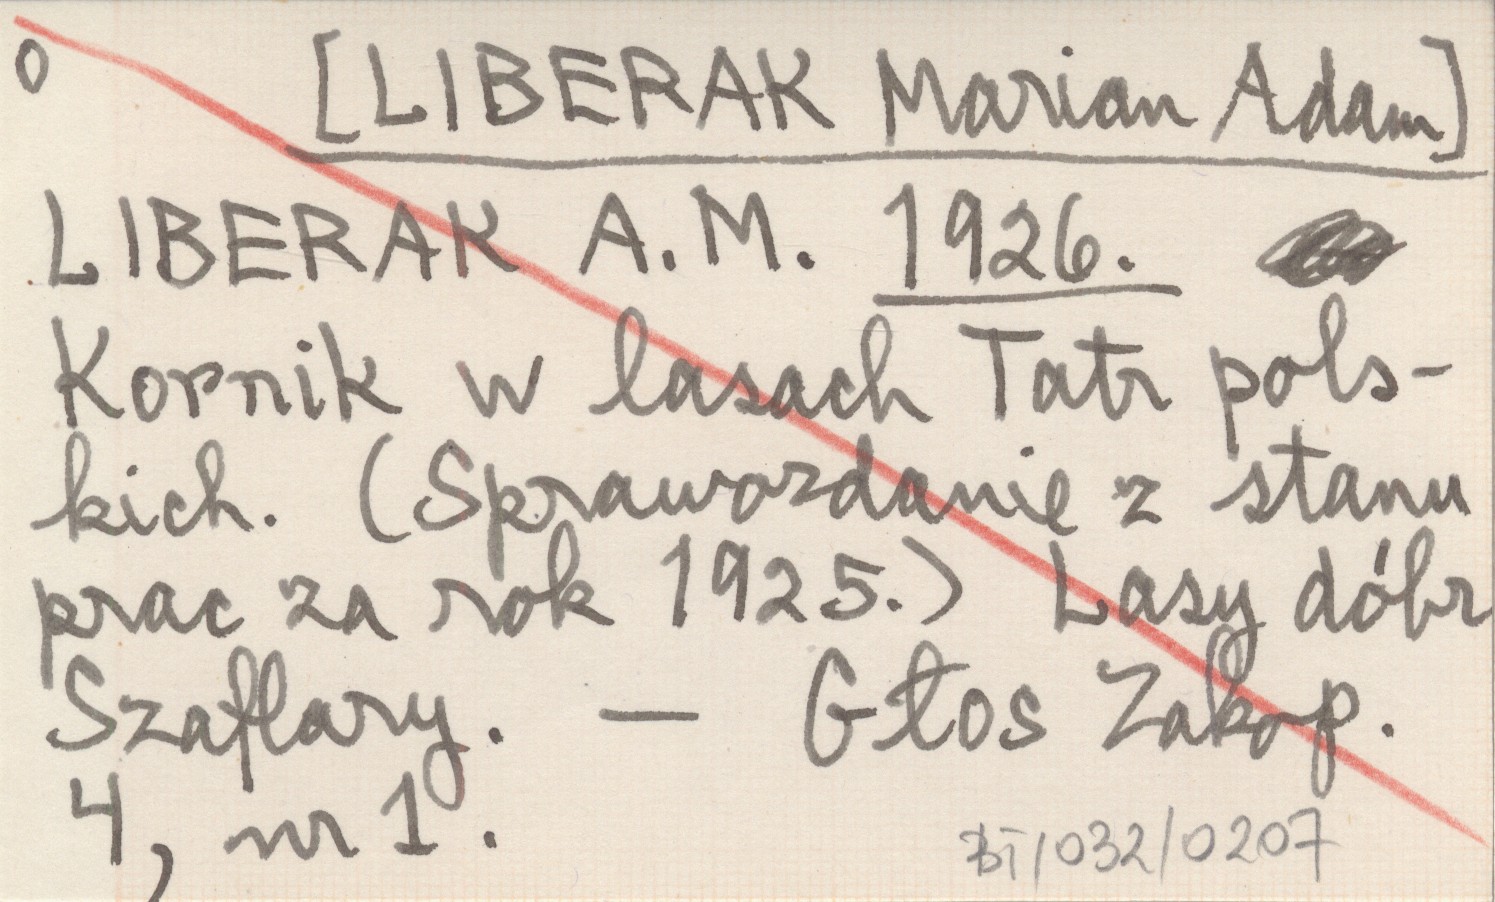 o [LIBERAK Marian Adam]
LIBERAK A.M. 1926.
Kornik w lasach Tatr pols-
kich. (Sprawozdanie z stanu
prac za rok 1925.) Lasy dóbr
Szaflary. — Głos Zakop.
4, nr 1.
BT/032/0207